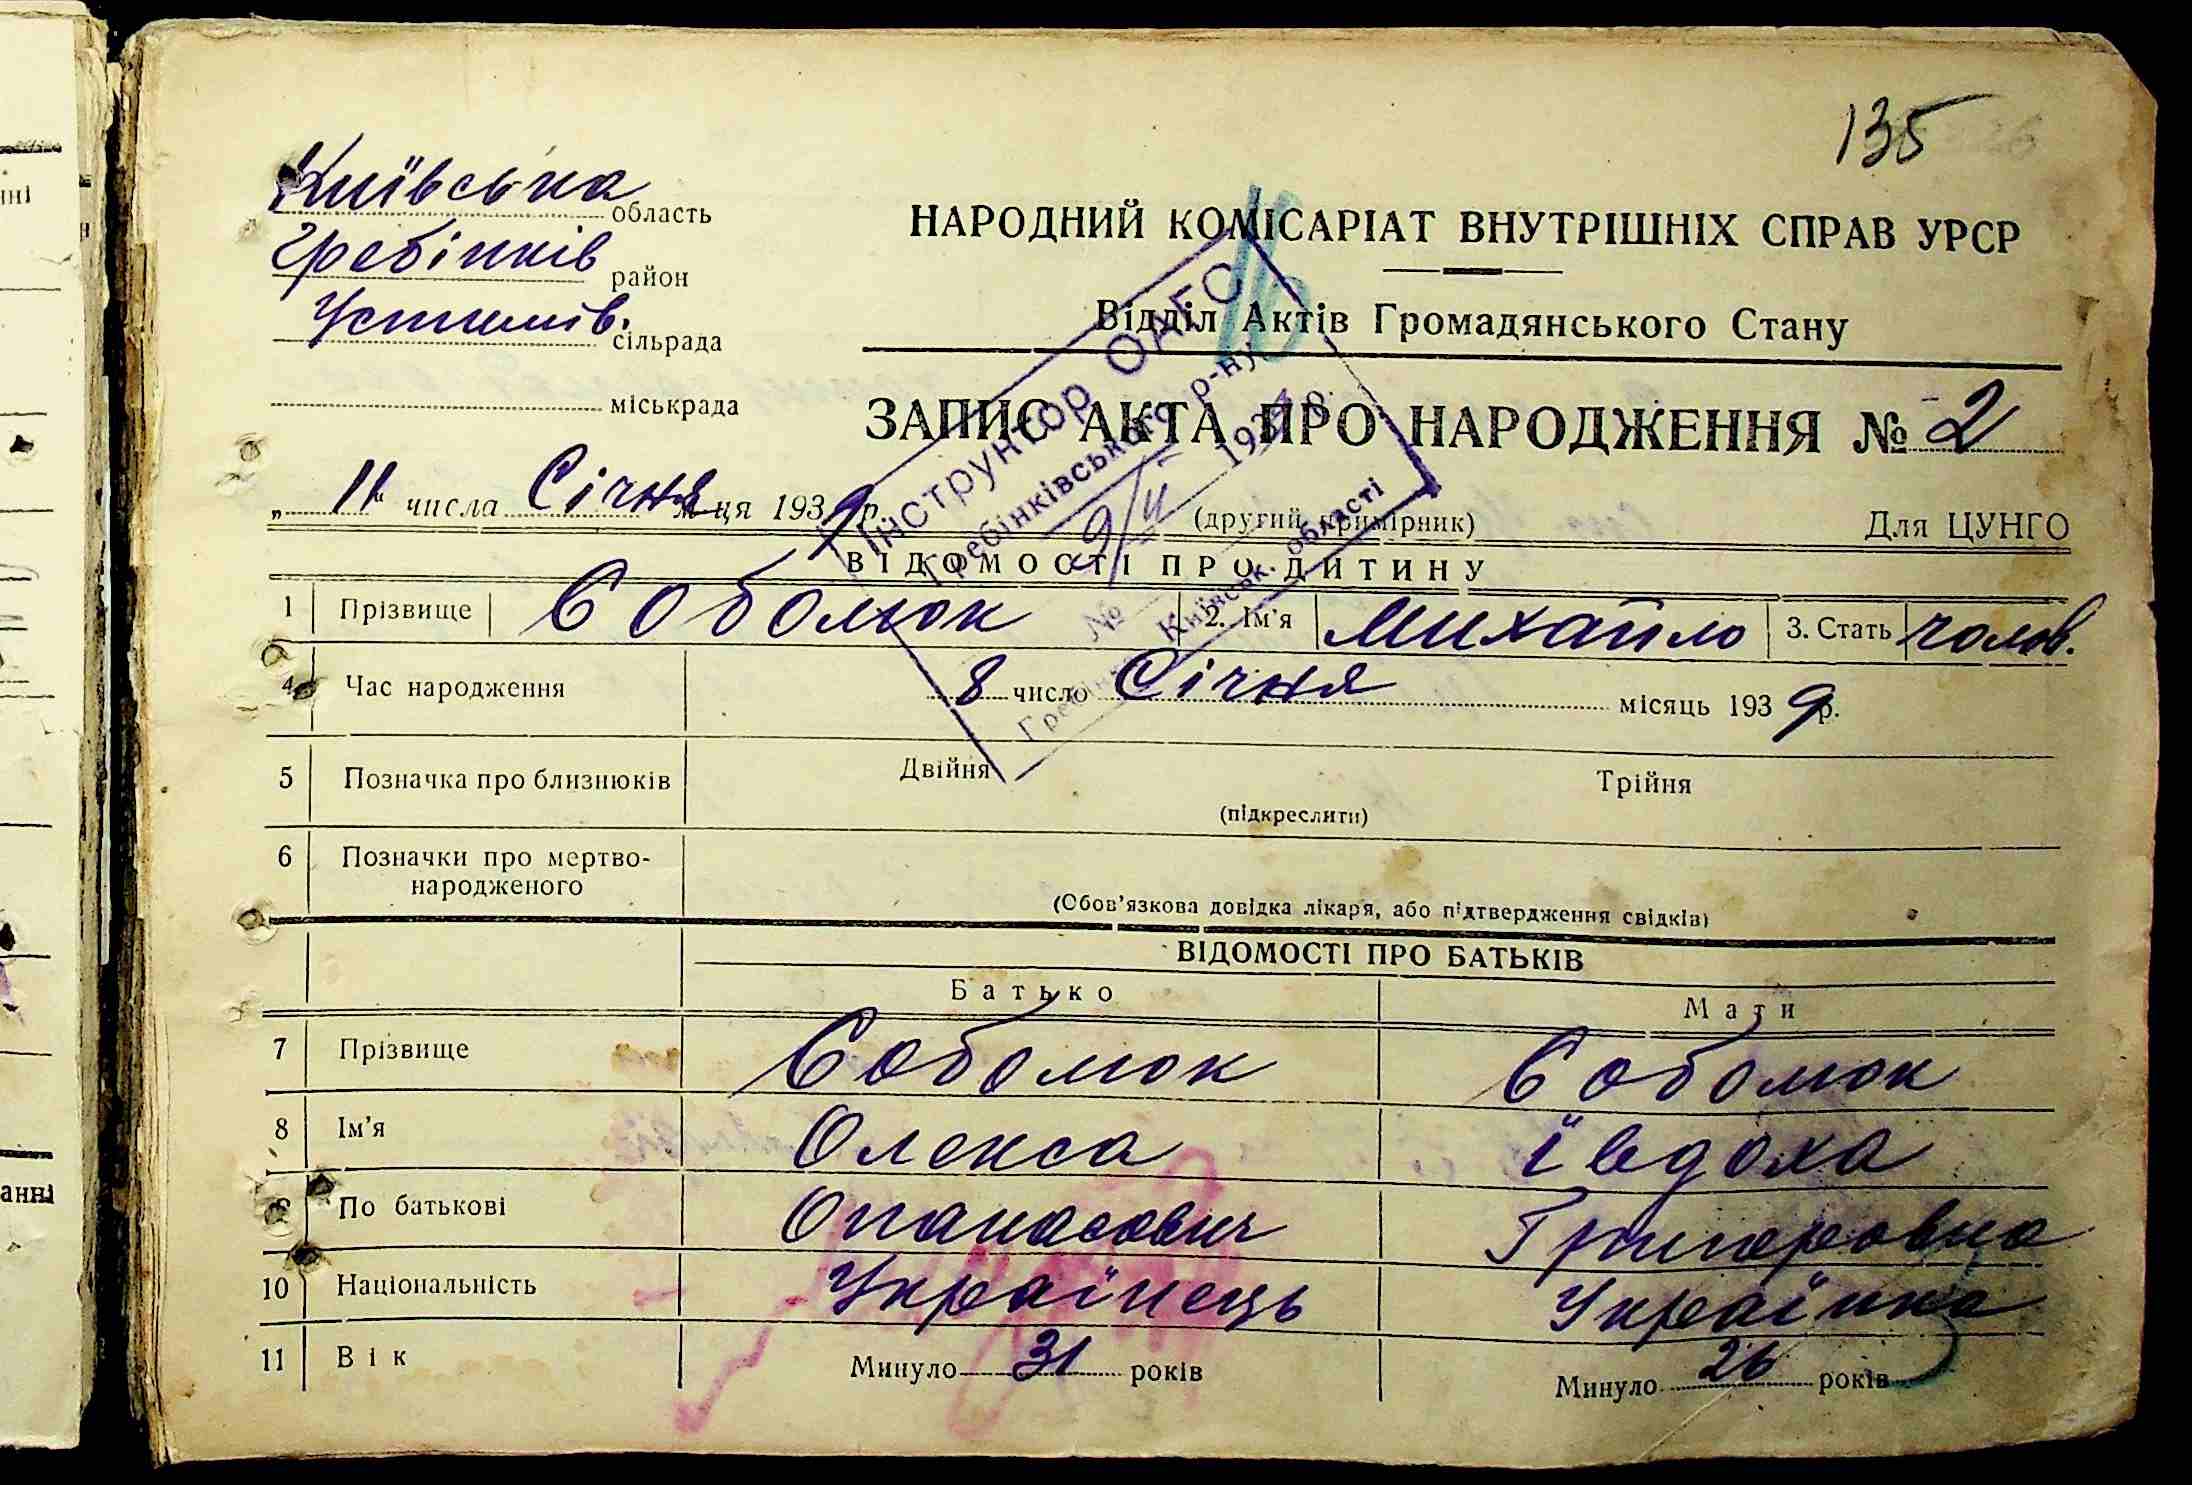 135
Київська область
Гребінків район
Устимів. сільрада
міськрада
НАРОДНИЙ КОМІСАРІАТ ВНУТРІШНІХ СПРАВ УРСР
Відділ Актів Громадянського Стану
ЗАПИС АКТА ПРО НАРОДЖЕННЯ № 2
„11" числа Січня м-ця 1939 р.
(другий примірник)
Для ЦУНГО
Інструктор ОАГС
Гребінківського р-ну
Київськ. області
ВІДОМОСТІ ПРО ДИТИНУ
1 Прізвище Соболюк 2. Ім'я Михайло 3. Стать чолов.
4 Час народження 8 число Січня місяць 1939 р.
5 Позначка про близнюків Двійня Трійня
(підкреслити)
6 Позначки про мертво-
народженого
(Обов'язкова довідка лікаря, або підтвердження свідків)
ВІДОМОСТІ ПРО БАТЬКІВ
Батько Мати
7 Прізвище Соболюк Соболюк
8 Ім'я Олекса Ївдоха
9 По батькові Опанасович Григоровна
10 Національність Українець Українка
11 Вік Минуло 31 років Минуло 26 років